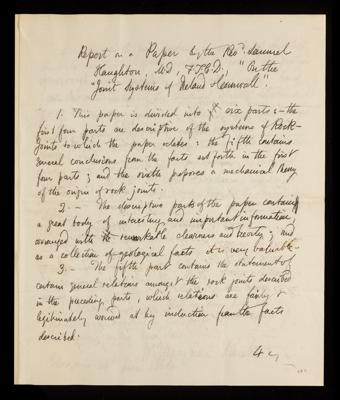 Report on a Paper by the Revd. Samuel
Haughton, M.D., F.T.C.D., "On the
"Joint Systems of Ireland & Cornwall".
1. This paper is divided into six parts :- the
first four parts are descriptive of the systems of Rock-
joints to which the paper relates : the fifth contains
general conclusions from the facts set forth in the first
four parts ; and the sixth proposes a mechanical theory
of the origin of rock joints.
2. - The descriptive parts of the paper contain
a great body of interesting and important information,
arranged with remarkable clearness and brevity ; and
as a collection of geological facts it is very valuable.-
3. - The fifth part contains the statement of
certain general relations amongst the rock joints described
in the preceding parts, which relations are fairly &
legitimately arrived at by induction from the facts
described.
4